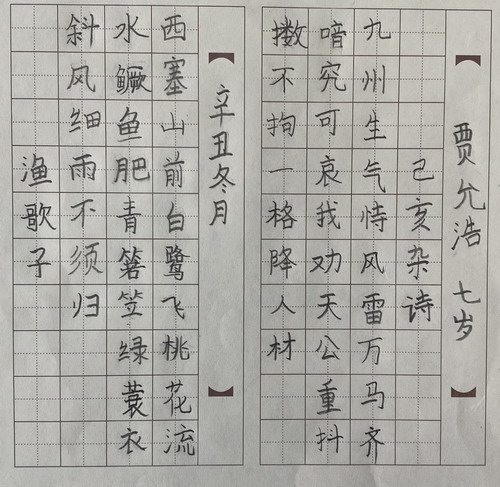 贾允浩 七岁
己亥杂诗
九州生气恃风雷万马齐
喑究可哀我劝天公重抖
擞不拘一格降人材
辛丑冬月
西塞山前白鹭飞桃花流
水鳜鱼肥青箬笠绿蓑衣
斜风细雨不须归
渔歌子